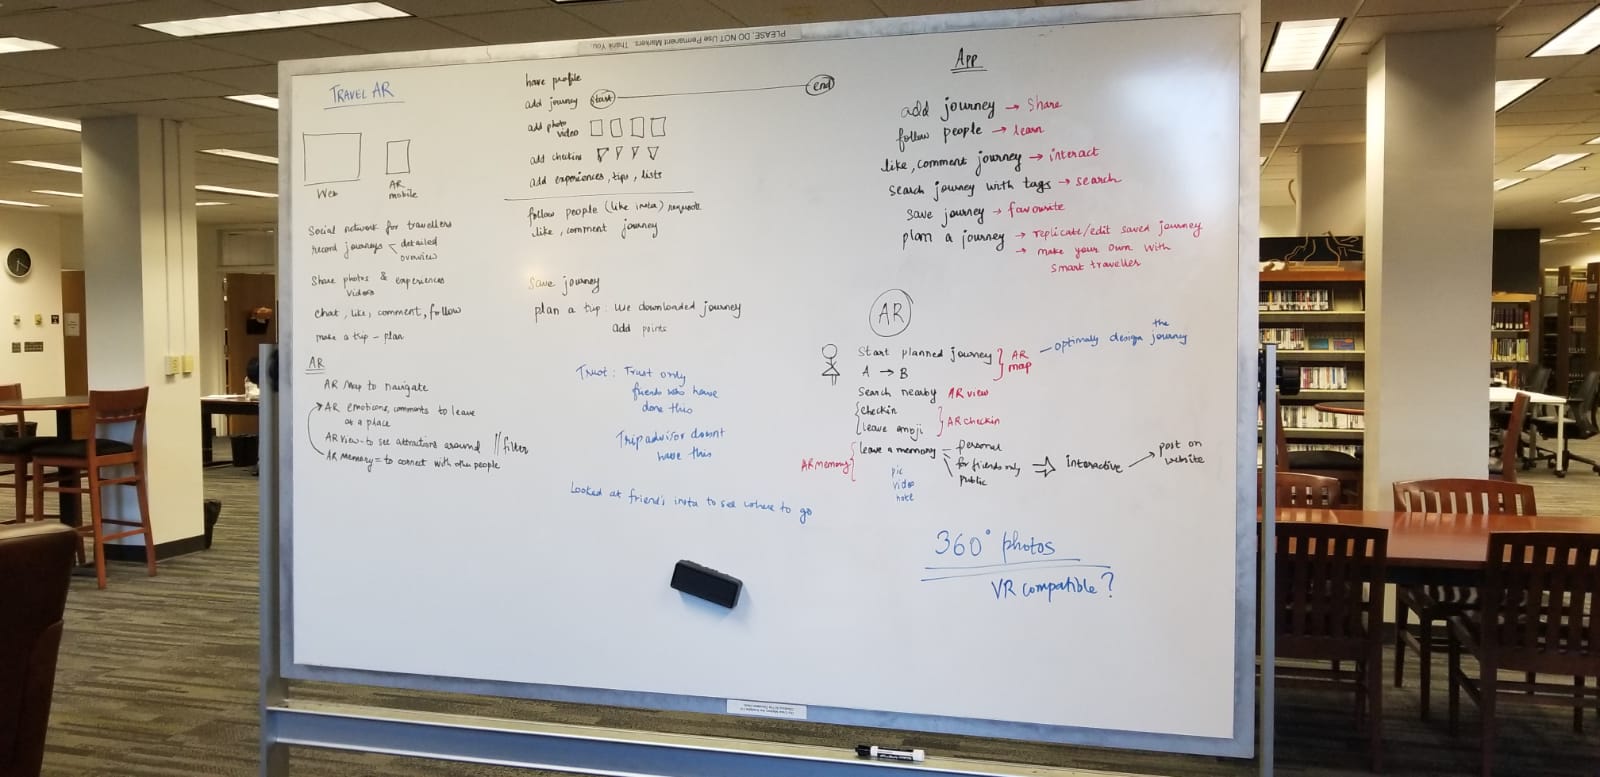 PLEASE, DO NOT Use Permanent Markers. Thank You.
TRAVEL AR
Web
AR
mobile
Social network for travellers
record journeys - detailed
overview
Share photos & experiences
videos
chat, like, comment, follow
make a trip - plan
AR
AR Map to navigate
AR emoticons, comments to leave
at a place
AR view - to see attractions around // filter
AR Memory = to connect with other people
have profile
add journey start end
add photo
video
add checkins
add experiences, tips, lists
follow people (like insta) requests
like, comment journey
Save journey
plan a trip: Use downloaded journey
add points
Trust: Trust only
friends who have
done this
Tripadvisor doesnt
have this
Looked at friend's insta to see where to go
App
add journey → Share
follow people → learn
like, comment journey → interact
search journey with tags → search
save journey → favourite
plan a journey → replicate/edit saved journey
→ make your own with
smart traveller
AR
Start planned journey } AR map - optimally design the journey
A → B
Search nearby AR view
{ checkin
leave emoji } AR checkin
AR memory { leave a memory - personal
for friends only ⇒ interactive → post on website
public
pic
video
note
360° photos
VR compatible?